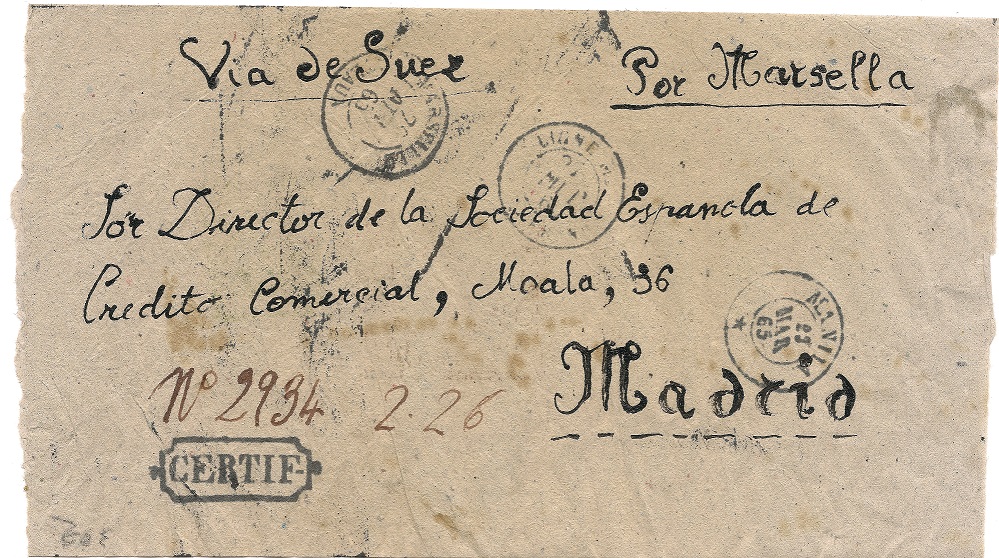 Via de Suez
Por Marsella
MARSEILLE
65
LIGNE
Sor Director de la Sociedad Espanola de
Credito Comercial, Moala, 36
MANILA
23
MAR
65
Madrid
Nº 2934 2.26
CERTIF